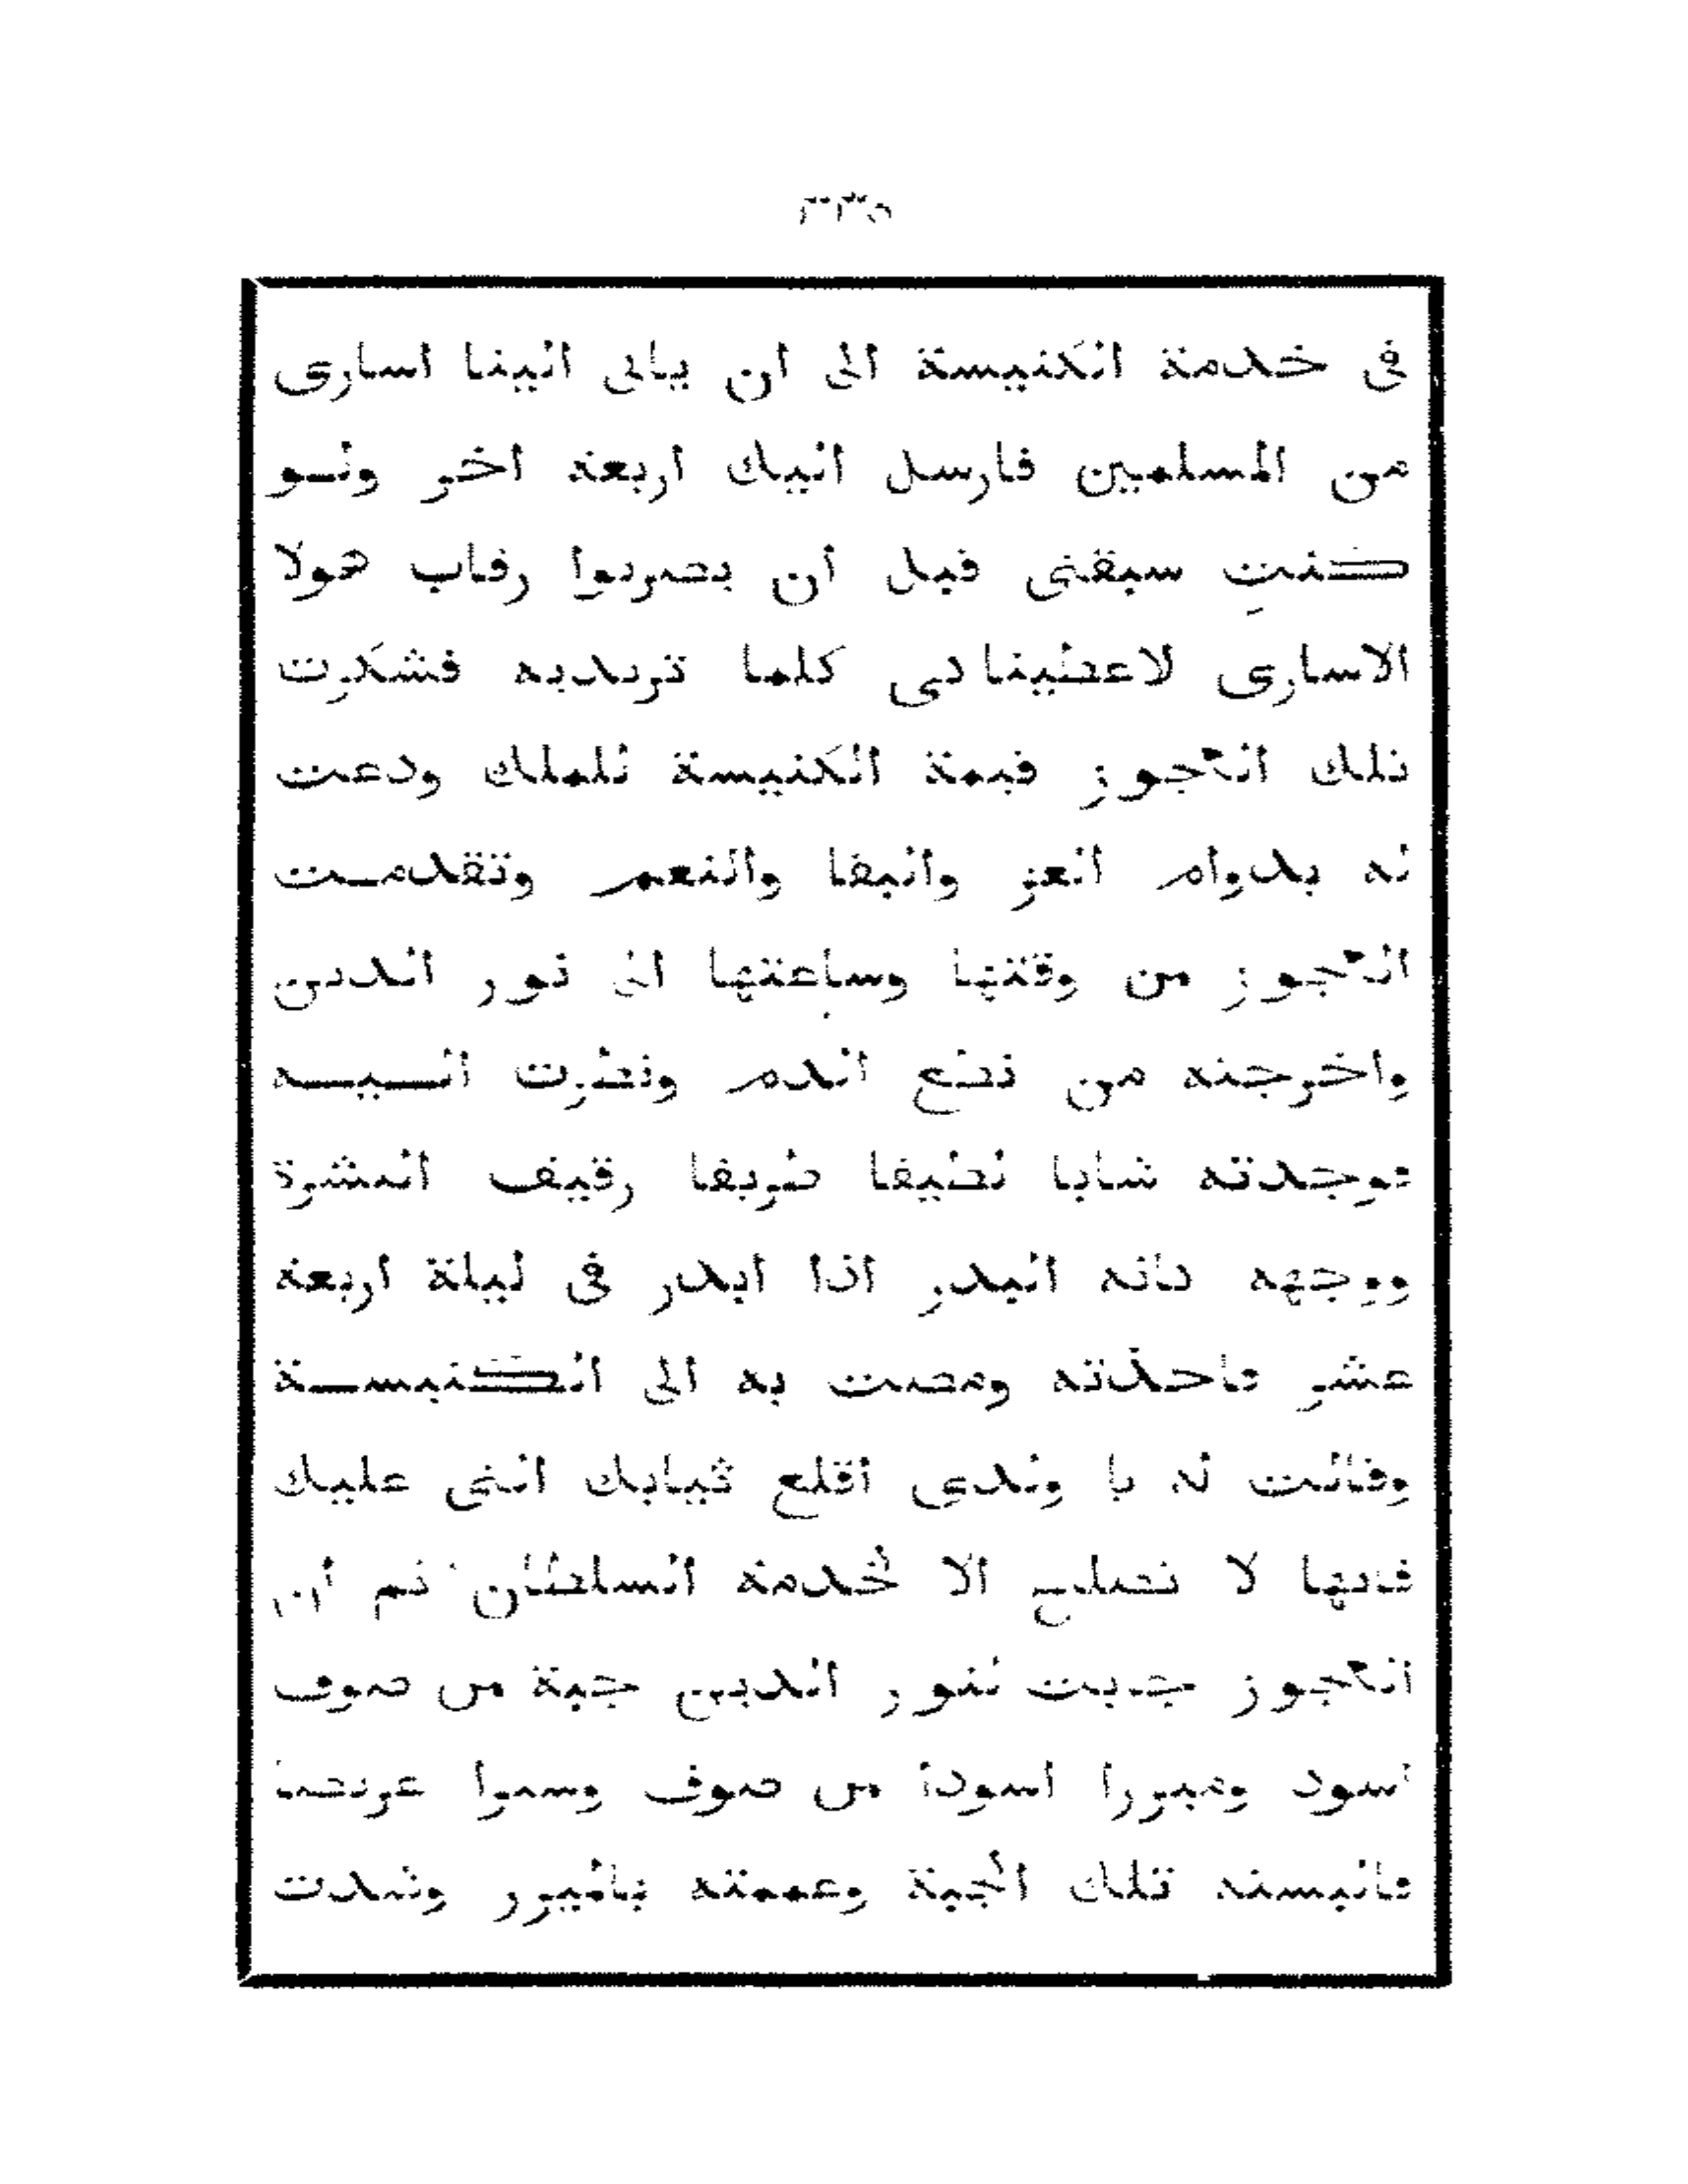 ٣٣٥
فى خدمة الكنيسة الى ان ياتى الينا اسارى
من المسلمين فارسل اليك اربعة اخر ولو
كنتِ سبقتى قبل ان يضربوا رقاب هولا
الاسارى لاعطيناكى كلما تريديه فشكرت
تلك العجوز قيمة الكنيسة للملك ودعت
له بدوام العز والبقا والنعم وتقدمت
العجوز من وقتها وساعتها الى نور الدين
واخرجته من نطع الدم ونظرت اليه
فوجدته شابا نظيفا ظريفا رقيق البشرة
ووجهه كانه البدر اذا ابدر فى ليلة اربعة
عشر فاخذته ومضت به الى الكنيسة
وقالت له يا ولدى اقلع ثيابك التى عليك
فانها لا تصلح الا لخدمة السلطان ثم ان
العجوز جابت لنور الدين جبة من صوف
اسود وميزرا اسودا من صوف وسيرا عريضا
فالبسته تلك الجبة وعممته بالميزر وشدت